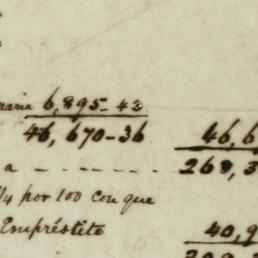 naria 6,895-43
46,670-36 46,6
a - - - - - - - 268,3
1/4 por 100 con que
Empréstito 40,9